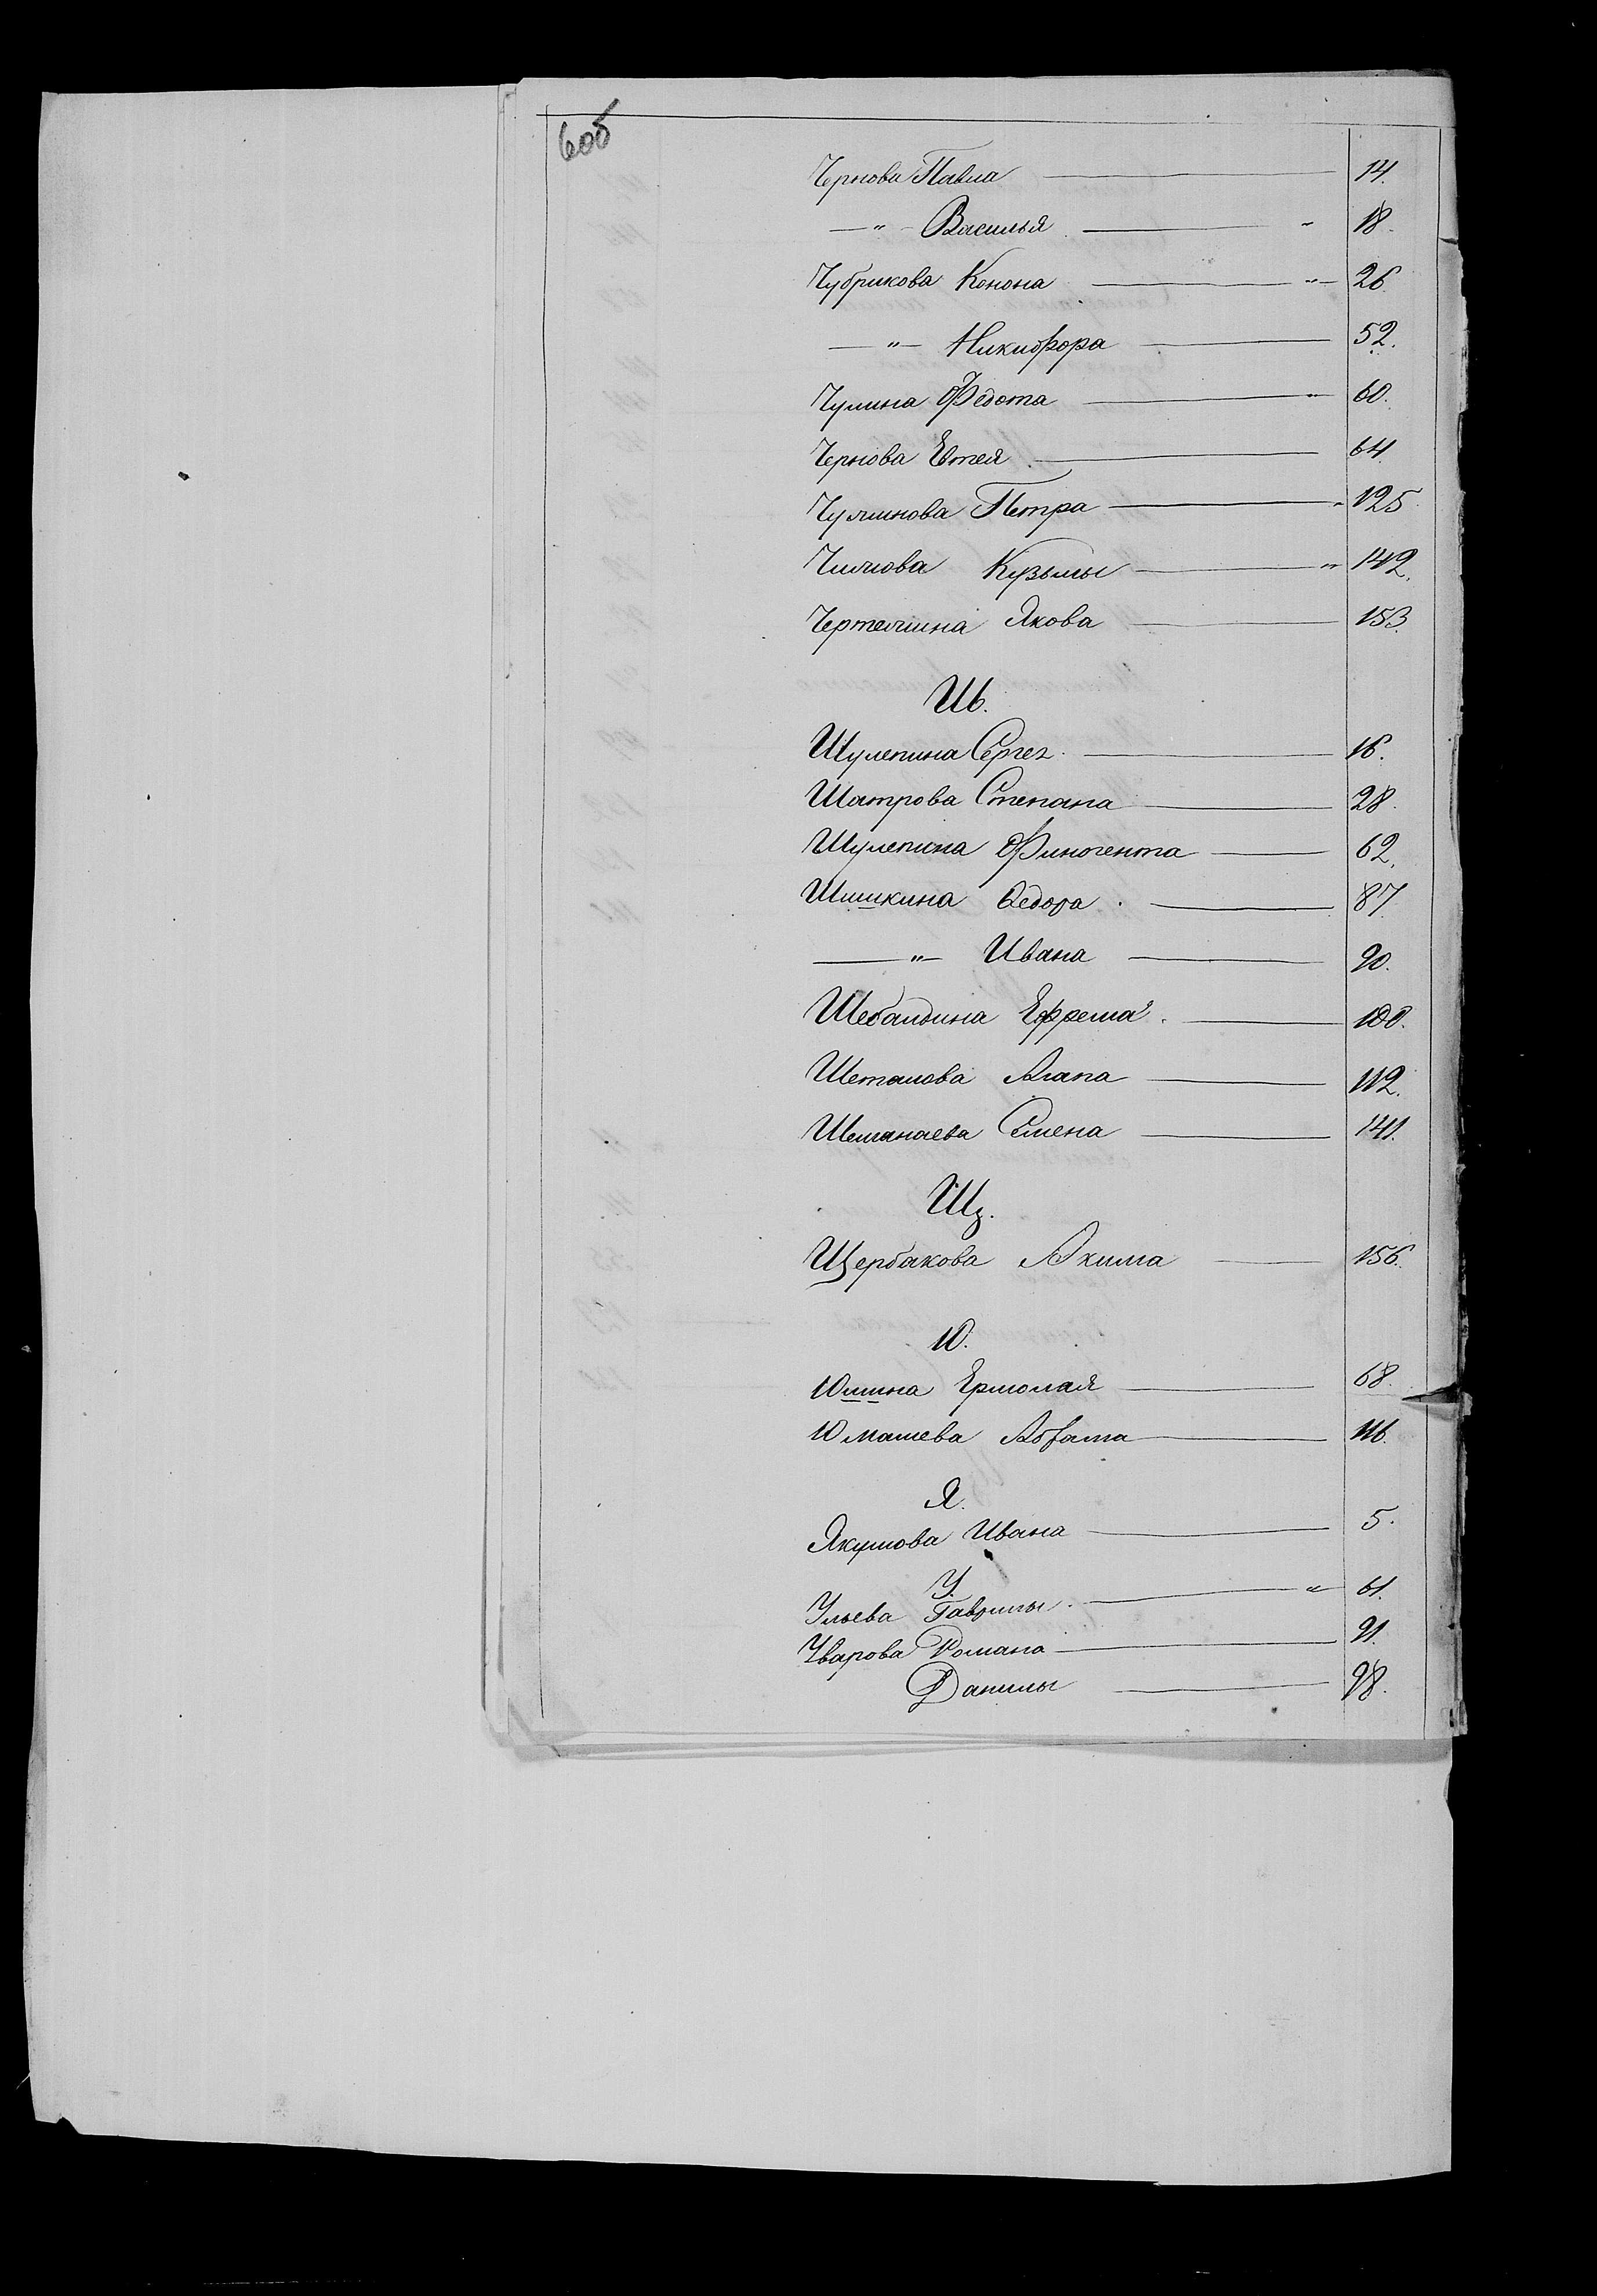 6об
Чернова Павла — 14.
— " — Василья — " 18.
Чубрикова Конона — " — 26
— " — Никифора — 52.
Чулина Федота — " 60.
Чернова Евтея — 64
Чулинова Петра — " 125
Чилкова Кузьмы — " 142.
Чертешина Якова — 153.
Ш.
Шулепина Сергея — 16.
Шатрова Степана — 28.
Шулепина Финогента — 62.
Шишкина Ѳедора — 87
— " — Ивана — 90.
Шебалдина Ефрема — 100.
Шеталова Агапа — 112.
Шеманаева Семена — 141.
Щ.
Щербакова Акима — 156.
Ю.
Юшина Ермолая — 68.
Юмашева Абрама — 116.
Я.
Якушова Ивана — 5.
У.
Ульева Гаврилы — " 61.
Уварова Романа — 91.
Данилы — 98.